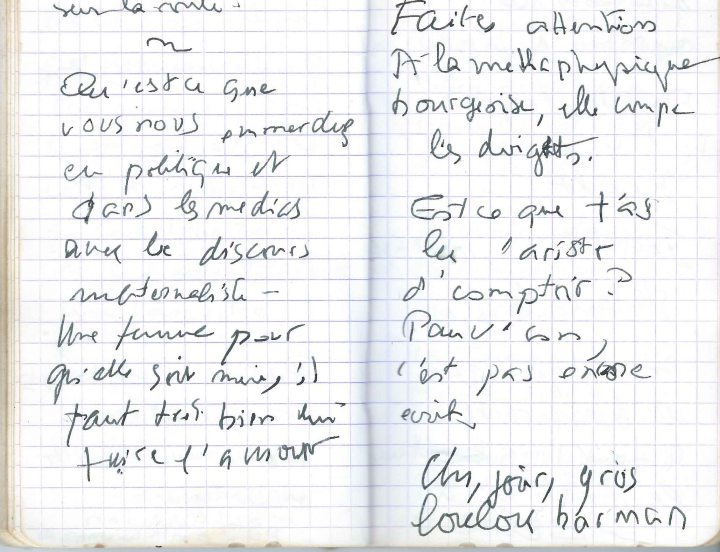 sur la route.
Qu'est ce que
vous nous emmerdez
en politique et
dans les medias
avec le discours
maternaliste –
Une femme pour
qu'elle soit mere, il
faut très bien lui
faire l'amour
Faites attention
A la methaphysique
bourgeoise, elle coupe
les doights.
Est ce que t'as
lu l'ariste
d'comptoir ?
Pauv' con,
c'est pas encore
ecrit,
gros
loulou barman